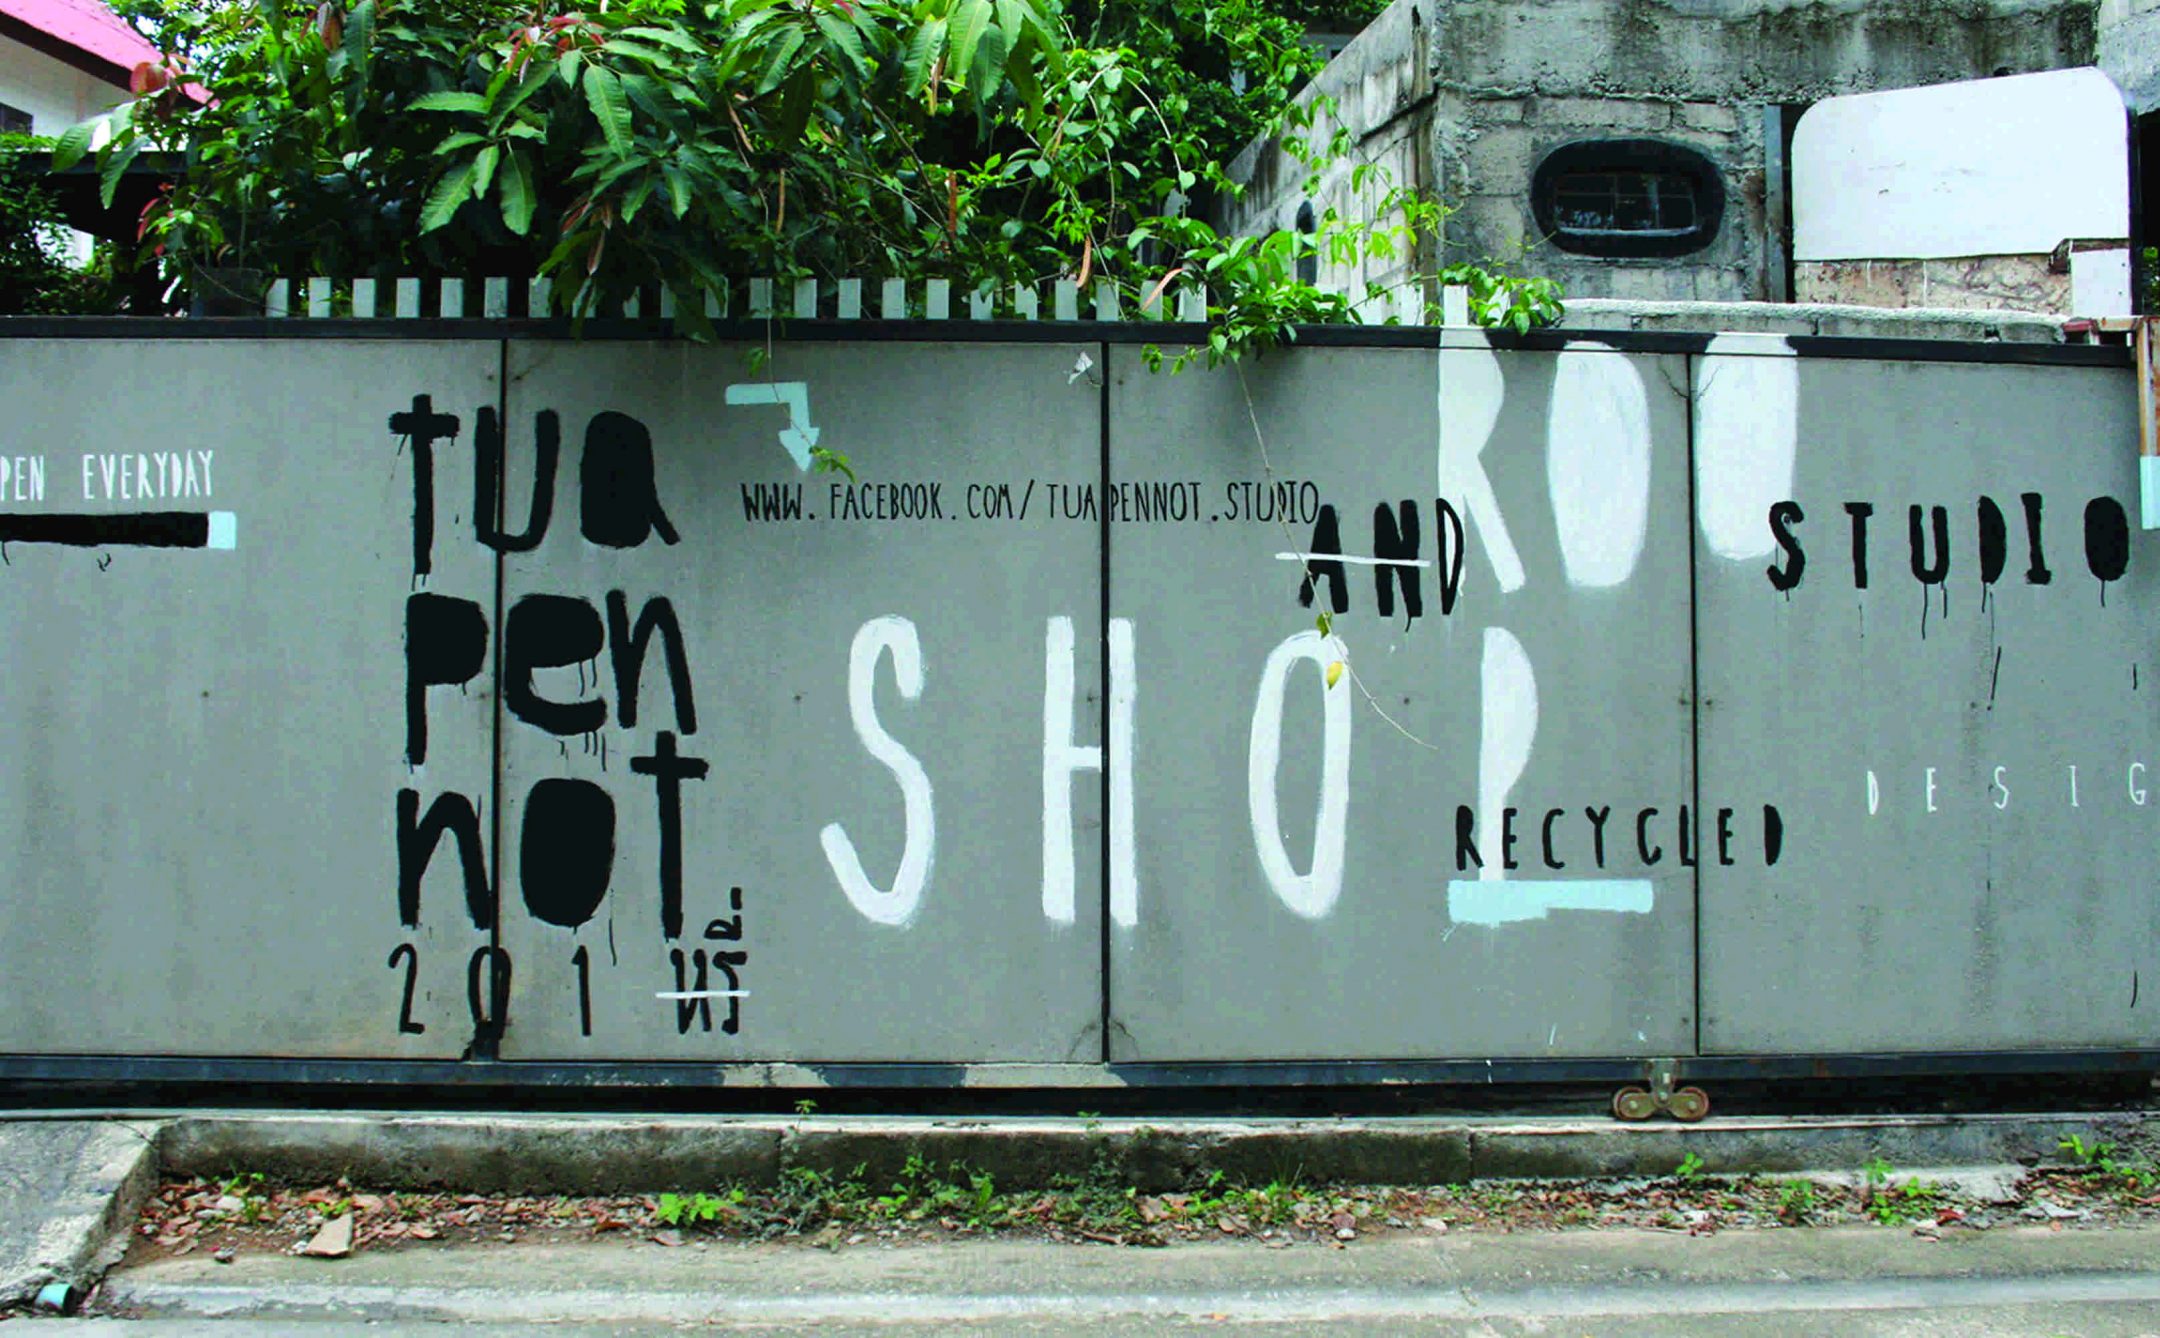 PEN EVERYDAY
tua
pen
not
201 หรี่
WWW.FACEBOOK.COM/TUAPENNOT.STUDIO
SHOP
AND
ROO
STUDIO
RECYCLED
DESIG